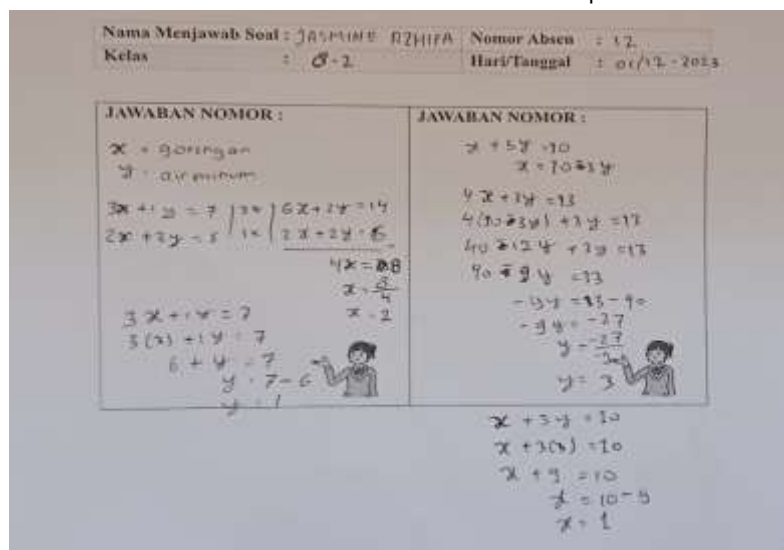 Nama Menjawab Soal : JASMINE AZHIFA Nomor Absen : 12
Kelas : 8-2 Hari/Tanggal : 01/12-2023
JAWABAN NOMOR :
x = gorengan
y = air minum
3x + 1y = 7 | 2x | 6x + 2y = 14
2x + 2y = 6 | 1x | 2x + 2y = 6 -
4x = 8
x = 8/4
x = 2
3x + 1y = 7
3(2) + 1y = 7
6 + y = 7
y = 7 - 6
y = 1
JAWABAN NOMOR :
x + 3y = 10
x = 10 - 3y
4x + 3y = 13
4(10 - 3y) + 3y = 13
40 - 12y + 3y = 13
40 - 9y = 13
-9y = 13 - 40
-9y = -27
y = -27/-9
y = 3
x + 3y = 10
x + 3(3) = 10
x + 9 = 10
x = 10 - 9
x = 1